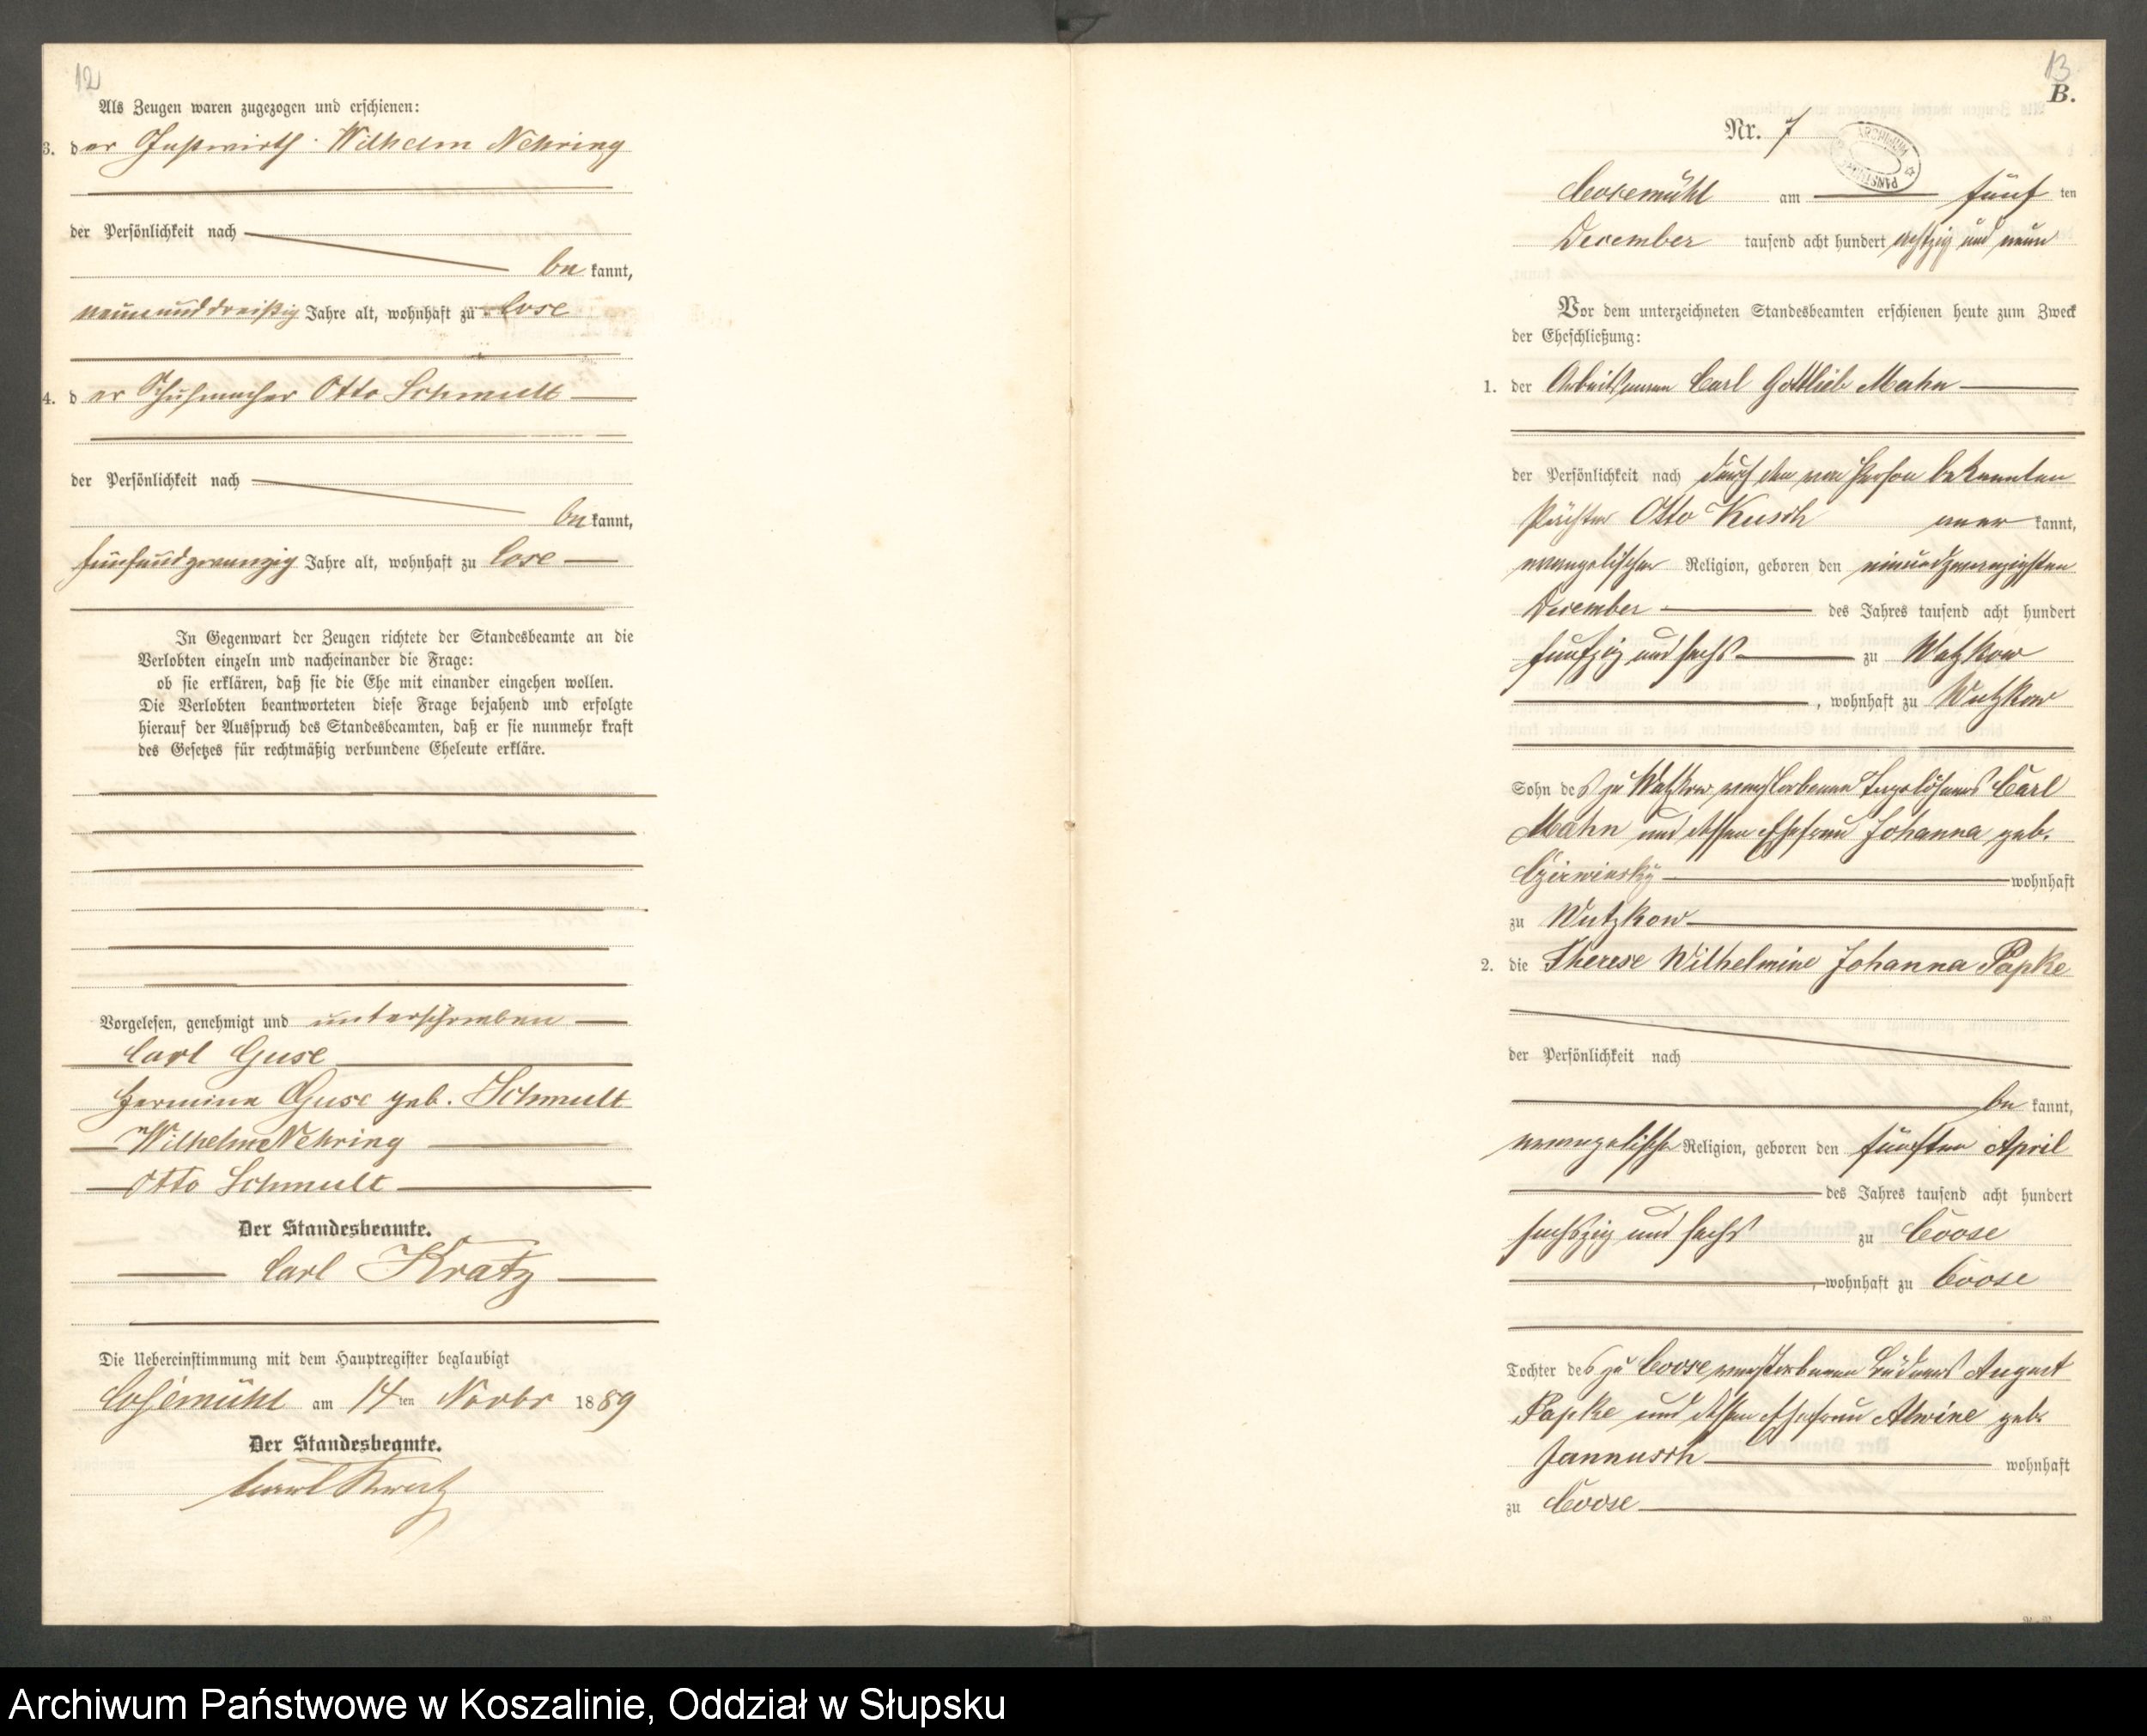 12
Als Zeugen waren zugezogen und erschienen:
3. der Gastwirth Wilhelm Nehring
der Persönlichkeit nach
be kannt,
neununddreißig Jahre alt, wohnhaft zu Cose
4. der Schuhmacher Otto Schmult
der Persönlichkeit nach
be kannt,
fünfundzwanzig Jahre alt, wohnhaft zu Cose
In Gegenwart der Zeugen richtete der Standesbeamte an die
Verlobten einzeln und nacheinander die Frage:
ob sie erklären, daß sie die Ehe mit einander eingehen wollen.
Die Verlobten beantworteten diese Frage bejahend und erfolgte
hierauf der Ausspruch des Standesbeamten, daß er sie nunmehr kraft
des Gesetzes für rechtmäßig verbundene Eheleute erkläre.
Vorgelesen, genehmigt und unterschrieben
Carl Guse
Hermine Guse geb. Schmult
Wilhelm Nehring
Otto Schmult
Der Standesbeamte.
Carl Kratz
Die Uebereinstimmung mit dem Hauptregister beglaubigt
Cosemühl am 14 ten Novbr 1889
Der Standesbeamte.
Carl Kratz
13
B.
Nr. 7
ARCHIWUM PAŃSTW
Cosemühl am fünf ten
December tausend acht hundert achtzig und neun
Vor dem unterzeichneten Standesbeamten erschienen heute zum Zweck
der Eheschließung:
1. der Arbeitsmann Carl Gottlieb Mahn
der Persönlichkeit nach durch den von Person bekannten
Pächter Otto Kusch aner kannt,
evangelischer Religion, geboren den einundzwanzigsten
December des Jahres tausend acht hundert
fünfzig und sechs zu Wutzkow
, wohnhaft zu Wutzkow
Sohn des zu Wutzkow verstorbenen Tagelöhners Carl
Mahn und dessen Ehefrau Johanna geb.
Czirwinsky wohnhaft
zu Wutzkow
2. die Therese Wilhelmine Johanna Papke
der Persönlichkeit nach
be kannt,
evangelischer Religion, geboren den fünften April
des Jahres tausend acht hundert
sechszig und sechs zu Coose
, wohnhaft zu Coose
Tochter des zu Coose verstorbenen Büdners August
Papke und dessen Ehefrau Alwine geb.
Jannusch wohnhaft
zu Coose
Archiwum Państwowe w Koszalinie, Oddział w Słupsku